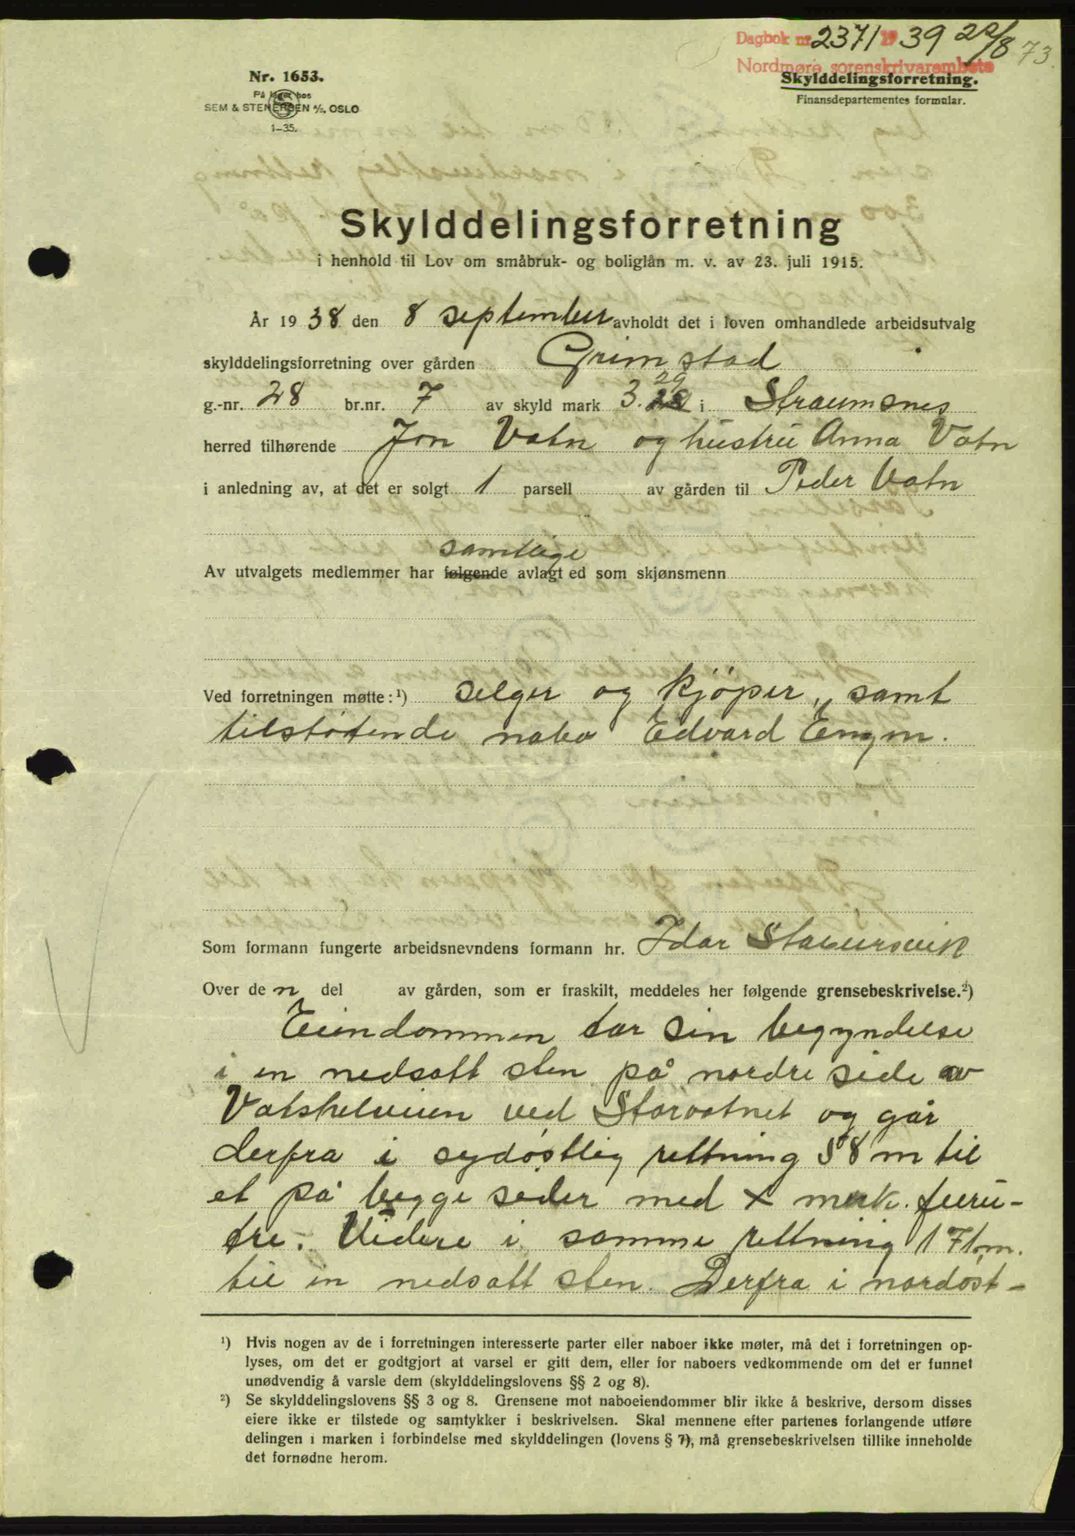 Dagbok nr. 2371 1939 22/8 73.
Nordmøre sorenskrivarembete
Nr. 1653.
På lager hos
SEM & STENERSEN A/S, OSLO
1-35.
Skylddelingsforretning.
Finansdepartementes formular.
Skylddelingsforretning
i henhold til Lov om småbruk- og boliglån m. v. av 23. juli 1915.
År 1938 den 8 september avholdt det i loven omhandlede arbeidsutvalg
skylddelingsforretning over gården Grimstad
29
g.-nr. 28 br.nr. 7 av skyld mark 3. i Straumsnes
herred tilhørende Jon Vatn og hustru Anna Vatn
i anledning av, at det er solgt 1 parsell av gården til Peder Vatn
samtlige
Av utvalgets medlemmer har følgende avlagt ed som skjønsmenn
Ved forretningen møtte: ¹) selger og kjøper, samt
tilstøtende nabo Edvard Engm.
Som formann fungerte arbeidsnevndens formann hr. Idar Staversvik
Over de n del av gården, som er fraskilt, meddeles her følgende grensebeskrivelse.²)
Eiendommen tar sin begyndelse
i en nedsatt sten på nordre side av
Vatshelveien ved Storvatnet og går
derfra i sydøstlig rettning 58 m til
et på begge sider med X merk. furu-
tre. Videre i samme rettning 171 m.
til en nedsatt sten. Derfra i nordøst-
¹) Hvis nogen av de i forretningen interesserte parter eller naboer ikke møter, må det i forretningen op-
lyses, om det er godtgjort at varsel er gitt dem, eller for naboers vedkommende om det er funnet
unødvendig å varsle dem (skylddelingslovens §§ 2 og 8).
²) Se skylddelingslovens §§ 3 og 8. Grensene mot naboeiendommer blir ikke å beskrive, dersom disses
eiere ikke er tilstede og samtykker i beskrivelsen. Skal mennene efter partenes forlangende utføre
delingen i marken i forbindelse med skylddelingen (lovens § 7), må grensebeskrivelsen tillike inneholde
det fornødne herom.